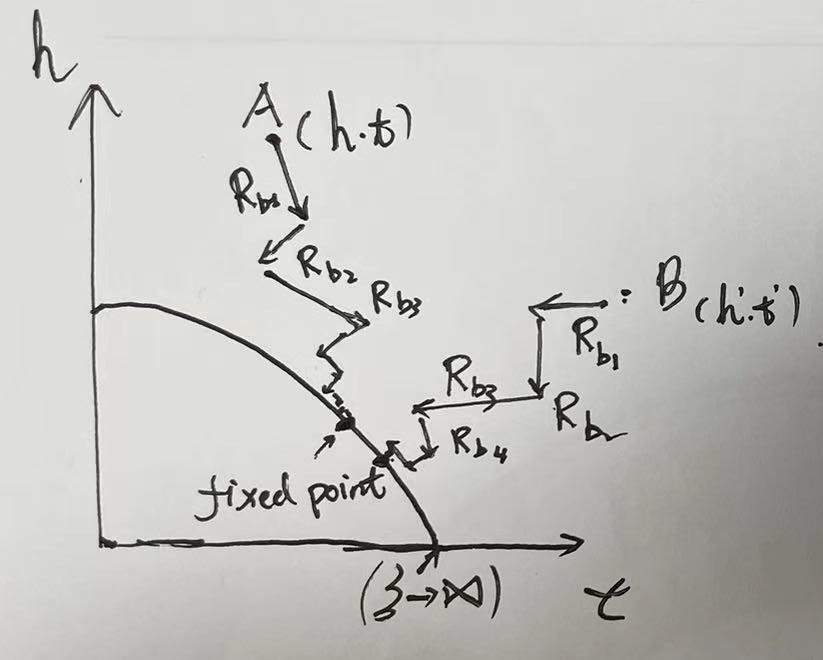 h
A(h.t)
R_b1
R_b2
R_b3
B(h'.t')
R_b1
R_b2
R_b3
R_b4
fixed point
(ξ→∞)
t